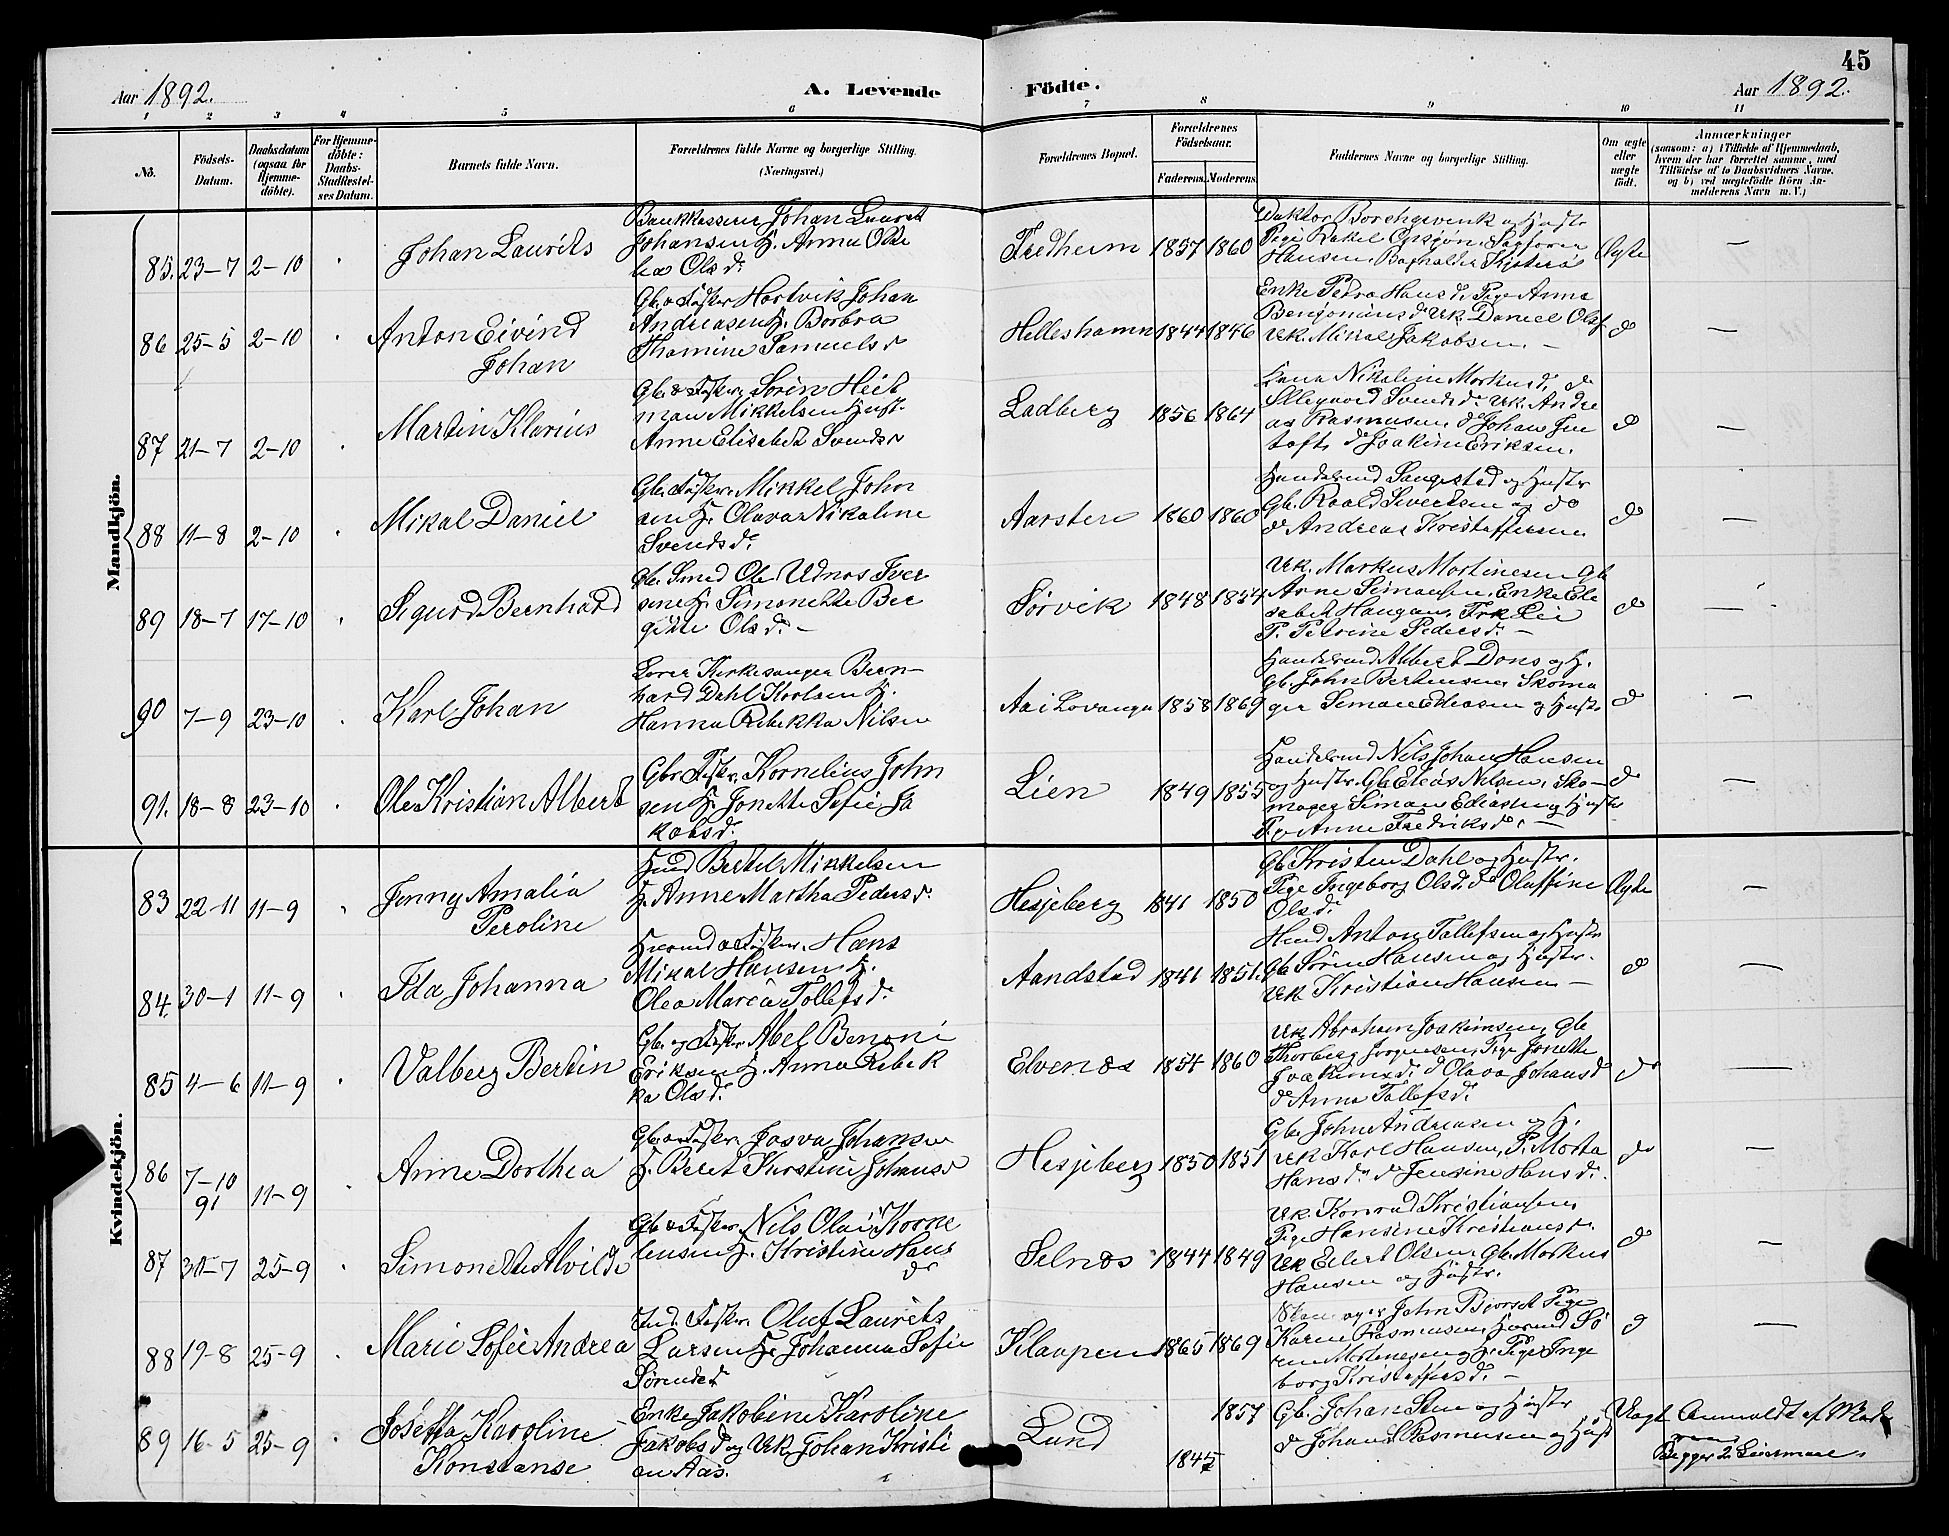 45
Aar 1892.
A. Levende
Födte.
Aar 1892.
1 2 3 4 5 6 7 8 9 10 11
No.
Födsels-
Datum.
Daabsdatum
(ogsaa for
Hjemme-
döbte).
For Hjemme-
döbte:
Daabs-
Stadfæstel-
ses Datum.
Barnets fulde Navn.
Forældrenes fulde Navne og borgerlige Stilling.
(Næringsvei.)
Forældrenes Bopæl.
Forældrenes
Födselsaar.
Faderens. Moderens.
Faddernes Navne og borgerlige Stilling.
Om ægte
eller
uægte
født.
Anmærkninger
(saasom: a) i Tilfælde af Hjemmedaab,
hvem der har forrettet samme, med
Tilføielse af to Daabsvidners Navne.
og b) ved uægtefödte Börn An-
melderens Navn m. V.)
Mandkjön.
85. 23-7 2-10
Johan Laurits
Bankkasserer Johan Laurits
Johansen H. Anna Ote
lia Olsd.
Fredheim 1857 1860
Hansen, Bogholder
Ægte
—
86 25-5 2-10
Anton Eivind
Johan
Gb. o Fisker Hartvik Johan
Andreasen H. Borbra
Thomine Samuelsd
Helleshamn 1844 1846
Enke Petra Hansd. Pige Anna
Benjaminsd Uk. Daniel Olsf
Uk. Mikal Jakobsen. —
d
—
87 21-7 2-10
Martin Klarius
Gb. & Fisker Sören Heit
man Mikkelsen Hust.
Anne Elisabet Svendsd
Ladberg 1856 1864
Nikoline Markusd. do
Ellegaard Svendsd. Uk. Andre
as Rasmusen, do Johan Jen
toft, do Joakim Eriksen.
d
—
88 11-8 2-10
Mikal Daniel
Gb. Fisker Mikkel John
sen H. Olava Nikoline
Svendsd.
Aarstein 1860 1860
Handelsmd Sangestad og Hustr
Gb. Roald Sivertsen og do
do Andreas Kristoffersen
d
—
89 18-7 17-10
Sigurd Bernhard
Gb. Smed Ole Udnæs Iver
sen H. Simonette Ber
gitte Olsd. —
Sörvik 1848 1854
Uk. Markus Martinesen Gb
Arne Simonsen, Enke Eli
sabet Haugan, Frk Lie
P. Petrine Pedersd. —
d
—
90 7-9 23-10
Karl Johan
Lærer Kirkesanger Bern-
hard Dahl Karlsen H.
Hanna Rebekka Nilsen
Aa i Lavangen 1858 1869
Handelsmd Albert Dons og H.
Gb. John Berteusen Skoma
ger Simon Eliasen og Hustr
d
—
91. 18-8 23-10
Ole Kristian Albert
Gbr. Fisker, Kornelius John
sen H. Jonette Sofie Ja
kobsd.
Lien 1849 1855
Handelsmd Nils Johan Hansen
og Hustr. Gb. Elias Nilsen, Sko-
mager Simon Eliasen og Hustr
Pige Anne Fredriksd. —
d
—
Kvindekjön.
83 22-11 11-9
Jenny Amalia
Peroline
Hmd Bertel Mikkelsen
H. Anne Martha Pedersd.
Hesjeberg 1841 1850
Gb Kristen Dahl og Hustr.
Pige Ingeborg Olsd. do Oluffine
Olsd.
Ægte
—
84. 30-1 11-9
Ida Johanna
Husmd o Fisker. Hans
Mikal Hansen H.
Olea Maria Tollefsd.
Aandstad 1841 1851.
Hmd Anton Tollefsen og Hustr
Gb Sören Hansen og Hustr.
Uk Kristian Hansen —
d
—
85 4-6 11-9
Valberg Bertin
Gb. og Fisker Abel Benoni
Eriksen H. Anna Rebek
ka Olsd.
Elvenes 1854 1860
Uk Abraham Joakimsen, Gb
Thorberg Jørgensen, Pige Jonette
Joakimsd. d Olava Johansd
do Anna Tollefsd.
do
—
86 7-10
91 11-9
Anne Dorthea
Gb. o Fisker Josva Johansen
H. Beret Kirstine Johansd
Hesjeberg 1850 1851
Gb. John Andreasen og H.
Uk Karl Hansen, P. Marta
Hansd. do Jensine Hansd.
do
—
87 30-7 25-9
Simonette Alvilde
Gb o Fisker, Nils Olai Korne
liusen H. Kristine Hans
dr
Selnes 1844 1849
Uk. Konrad Kristiansen
Pige Hansine Kristiansd.
Uk Eilert Olsen, Gb. Markus
Hansen og Hustr.
d
—
88 19-8 25-9
Marie Sofie Andrea
Ind. Fisker. Oluf Laurits
Larsen H. Johanna Sofie
Sörensd
Klaapen 1865 1869
John Pige
Karen Rasmusen, Husmd Sö
ren Martinesen og H. Pige Inge
borg Kristoffersd. —
d
—
89 16-5 25-9
Josefa Karoline
Konstanse
Enke Jakobine Karoline
Jakobsd og Uk. Johan Kristi
an Aas.
Lund 1845 1857
Gb. Johan og Hustr
do Johan L Rasmusen og Hust
Uægt
Anmeldt af
Begges 2 Leiermaal